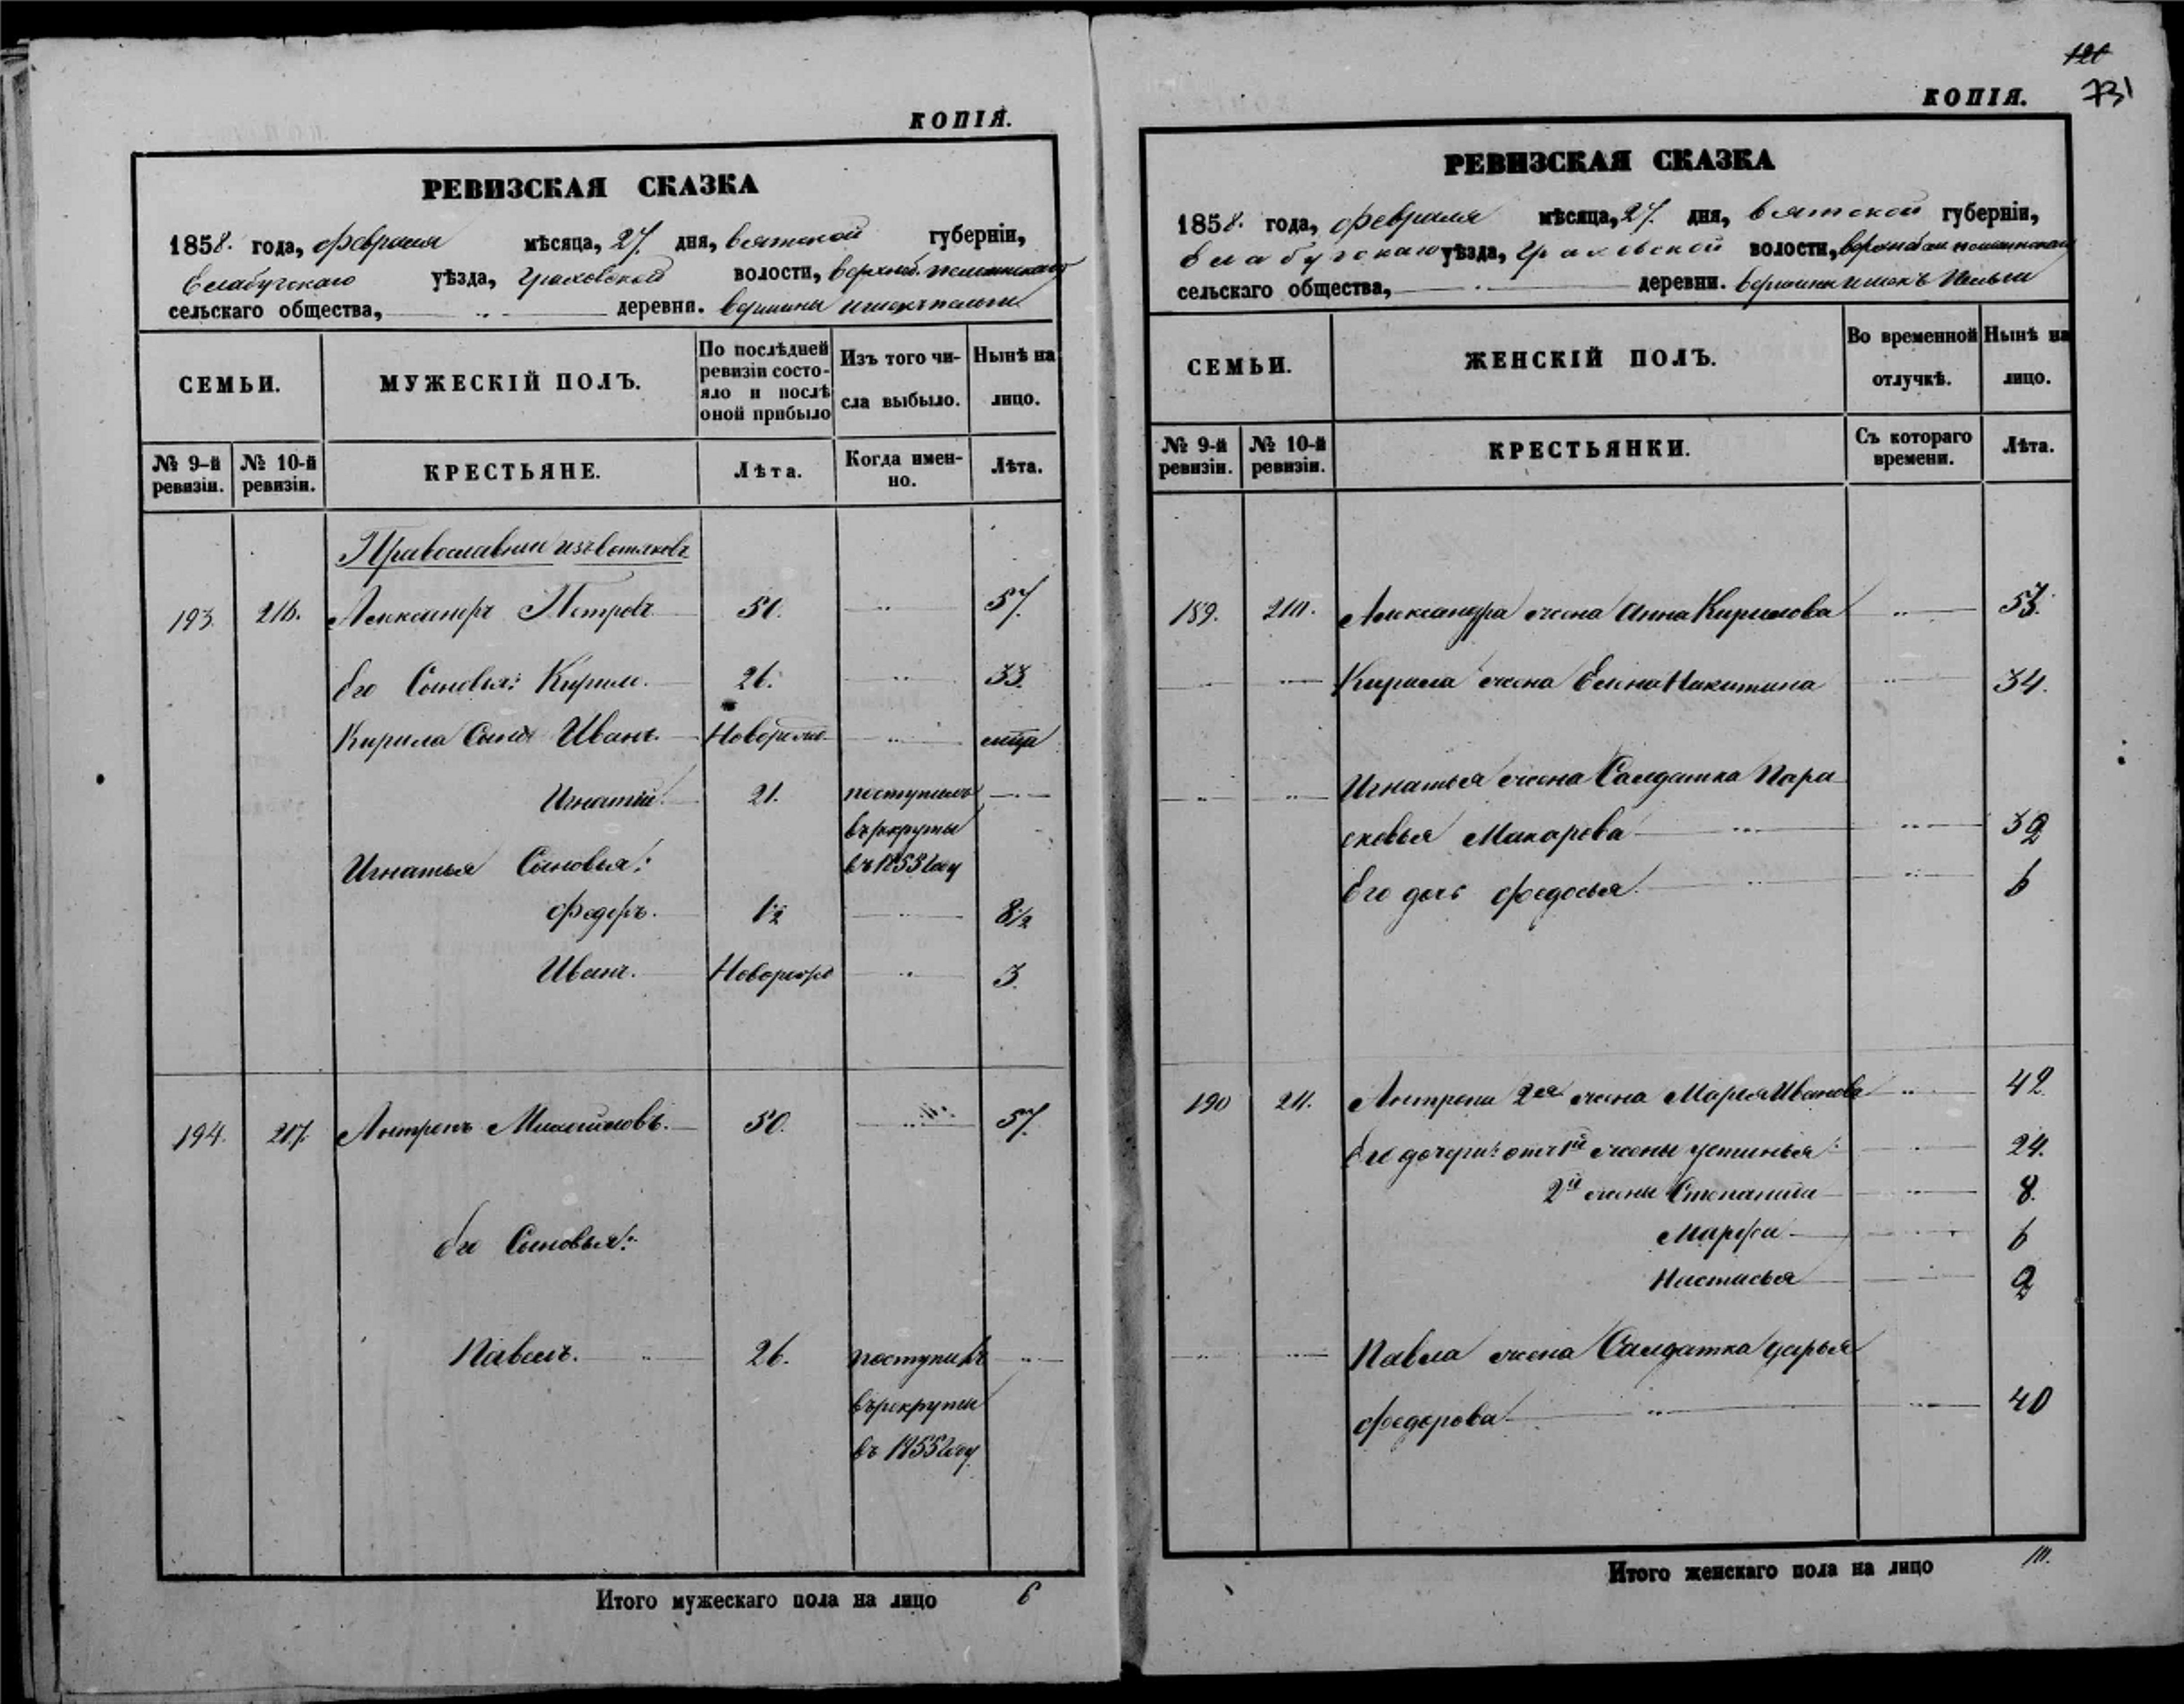 КОПІЯ.
РЕВИЗСКАЯ СКАЗКА
1858. года, февраля мѣсяца, 27. дня, вятской губерніи,
Елабугскаго уѣзда, Граховской волости,
сельскаго общества, деревни. вершины
СЕМЬИ.
МУЖЕСКІЙ ПОЛЪ.
По послѣдней ревизіи состояло и послѣ оной прибыло
Изъ того числа выбыло.
Нынѣ на лицо.
№ 9-й ревизіи.
№ 10-й ревизіи.
КРЕСТЬЯНЕ.
Лѣта.
Когда именно.
Лѣта.
Православныи изъ вотяковъ
193. 216. Александръ Петровъ 50. 57.
его Сыновья: Кирило. 26. 33.
Кирила Сынъ Иванъ. Новорожд
Игнатій. 21. поступилъ
въ рекруты
Игнатья Сыновья: въ 1855 году
Федоръ. 1½ 8½
Иванъ. Новорожд 3.
194. 217. Антропъ Михайловъ. 50. 57.
его Сыновья:
Павелъ. 26. поступилъ
въ рекруты
въ 1855 году
Итого мужескаго пола на лицо 6
120
731
КОПІЯ.
РЕВИЗСКАЯ СКАЗКА
1858. года, февраля мѣсяца, 27. дня, вятской губерніи,
Елабугскаго уѣзда, Граховской волости,
сельскаго общества, деревни.
СЕМЬИ.
ЖЕНСКІЙ ПОЛЪ.
Во временной отлучкѣ.
Нынѣ на лицо.
№ 9-й ревизіи.
№ 10-й ревизіи.
КРЕСТЬЯНКИ.
Съ котораго времени.
Лѣта.
189. 210. Александра жена Анна Кирилова 53.
Кирила жена Елена Никитина 34.
Игнатья жена Салдатка Пара
сковья Макарова 32
Его дочь федосья 6
190 211. Антропа 2ая жена Марья Иванова 42
Его дочери: отъ 1й жены устинья 24.
2й жены Степанида 8.
Марфа 6
Настасья 2
Павла жена Салдатка дарья
федорова 40
Итого женскаго пола на лицо 10.